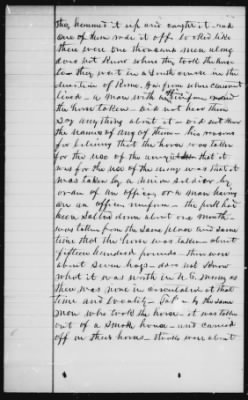 they hemmed it up and caught it - and
one of them rode it off looked like
there were one thousand men along
does not know where they took the horse
to - they went in a South course in the
direction of Rome, Ga. from where claimant
lived - a man with an officers uniform ordered
the horse taken - did not hear them
say anything about it - did not know
the names of any of them - his reasons
for believing that the horse was taken
for the use of the army is that it
was for the use of the army was that it
was taken by a Union Soldier by
order of an officer or a man having
on an officers uniform - the pork had
been salted down about one month -
was taken from the same place and same
time that the horse was taken - about
fifteen hundred pounds - there were
about seven hogs - does not know
what it was worth in U.S. money as
there was none in circulation at that
time and locality - by the same
men who took the horse - it was taken
out of a smoke house - and carried
off on their horses - thinks were about